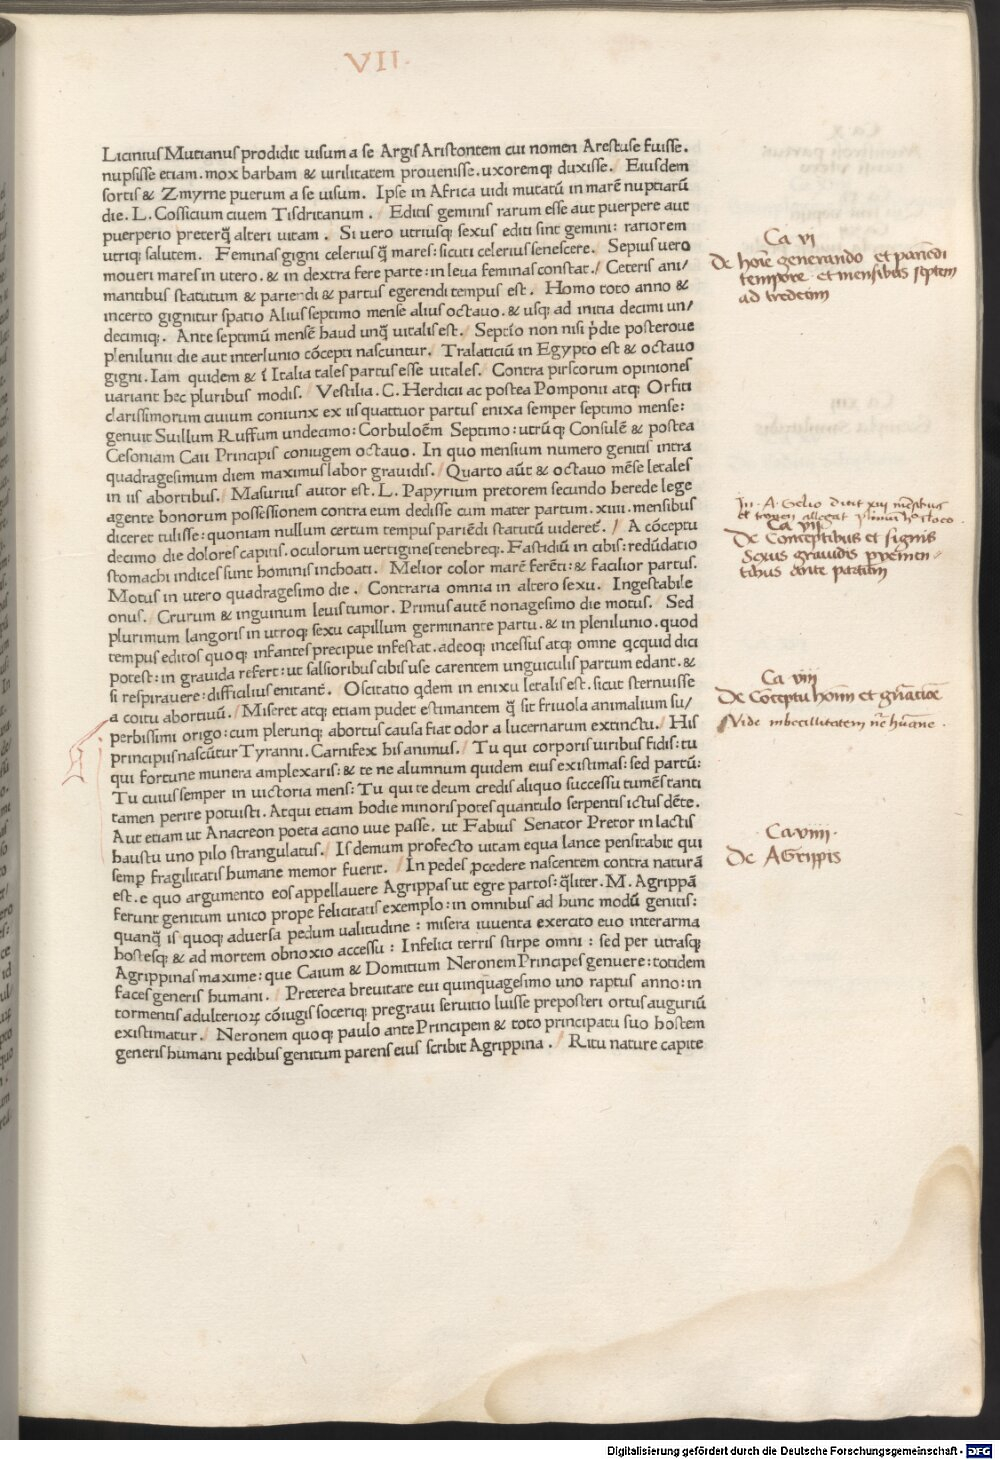 VII.
Licinius Mutianus prodidit uisum a se Argis Aristontem cui nomen Arestuse fuisse.
nupsisse etiam. mox barbam & uirilitatem prouenisse. uxoremq; duxisse. / Eiusdem
sortis & Zmyrne puerum a se uisum. Ipse in Africa uidi mutatū in marē nuptiarū
die. L. Cossicium ciuem Tisdritanum. / Editis geminis rarum esse aut puerpere aut
puerperio preterq̄ alteri uitam. Si uero utriusq; sexus editi sint gemini: rariorem
utriq; salutem. Feminas gigni celerius q̄ mares: sicuti celerius senescere. / Sepius uero
moueri mares in utero. & in dextra fere parte: in leua feminas constat. / Ceteris ani/
mantibus statutum & pariendi & partus egerendi tempus est. Homo toto anno &
incerto gignitur spatio Alius septimo mense alius octauo. & usq; ad initia decimi un/
decimiq;. Ante septimū mensē haud unq̄ uitalis est. / Septīo non nisi p̄die posteroue
plenilunii die aut interlunio cōcepti nascuntur. / Tralaticiū in Egypto est & octauo
gigni. Iam quidem & ī Italia tales partus esse uitales. / Contra pirscorum opiniones
uariant hec pluribus modis. / Vestilia. C. Herdicii ac postea Pomponii atq; Orfiti
clarissimorum ciuium coniunx ex iis quattuor partus enixa semper septimo mense:
genuit Suillum Ruffum undecimo: Corbuloēm Septimo: utrūq; Consulē & postea
Cesoniam Caii Principis coniugem octauo. In quo mensium numero genitis intra
quadragesimum diem maximus labor grauidis. / Quarto aūt & octauo mēse letales
in iis abortibus. / Masurius autor est. L. Papyrium pretorem secundo herede lege
agente bonorum possessionem contra eum dedisse cum mater partum. xiiii. mensibus
diceret tulisse: quoniam nullum certum tempus pariēdi statutū uideret̄. / A cōceptu
decimo die dolores capitis. oculorum uertigines tenebreq;. Fastidiū in cibis: redūdatio
stomachi indices sunt hominis inchoati. / Melior color marē ferēti: & facilior partus.
Motus in utero quadragesimo die. / Contraria omnia in altero sexu. Ingestabile
onus. / Crurum & inguinum leuis tumor. Primus autē nonagesimo die motus. / Sed
plurimum langoris in utroq; sexu capillum germinante partu. & in plenilunio. quod
tempus editos quoq; infantes precipue infestat. adeoq; incessus atq; omne qcquid dici
potest: in grauida refert: ut salsioribus cibis use carentem unguiculis partum edant. &
si respirauere: difficalius enitant̄. / Oscitatio qdem in enixu letalis est. sicut sternuisse
a coitu abortiuū. / Miseret atq; etiam pudet estimantem q̄ sit friuola animalium su/
perbissimi origo: cum plerunq; abortus causa fiat odor a lucernarum extinctu. / His
principiis nascūtur Tyranni. Carnifex his animus. / Tu qui corporis uiribus fidis: tu
qui fortune munera amplexaris: & te ne alumnum quidem eius existimas: sed partū:
Tu cuius semper in uictoria mens: Tu qui te deum credis aliquo successu tumēs tanti
tamen perire potuisti. Atqui etiam hodie minoris potes quantulo serpentis ictus dēte.
Aut etiam ut Anacreon poeta acino uue passe. ut Fabius Senator Pretor in lactis
haustu uno pilo strangulatus. / Is demum profecto uitam equa lance pensitabit qui
semp̱ fragilitatis humane memor fuerit. / In pedes p̱cedere nascentem contra naturā
est. e quo argumento eos appellauere Agrippas ut egre partos: q̄liter. M. Agrippā
ferunt genitum unico prope felicitatis exemplo: in omnibus ad hunc modū genitis:
quanq̄ is quoq; aduersa pedum ualitudine: misera iuuenta exercito euo inter arma
hostesq; & ad mortem obnoxio accessu: Infelici terris stirpe omni: sed per utrasq;
Agrippinas maxime: que Caium & Domitium Neronem Principes genuere: totidem
faces generis humani. / Preterea breuitate eui quinquagesimo uno raptus anno: in
tormentis adulterioꝝ cōiugis soceriq; pregraui seruitio luisse preposteri ortus auguriū
existimatur. / Neronem quoq; paulo ante Principem & toto principatu suo hostem
generis humani pedibus genitum parens eius scribit Agrippina. / Ritu nature capite
Ca vi
De hoīe generando et pariēdi
tempore et mensibus septem
ad tredecim
In . A. Gelio
Ca vii
De Conceptibus et signis
Sexus grauidis preueni-
tibus ante partum
Ca viii
De Cōceptu hōīm et gn̄atiōe
Vide imbecillitatem
Ca. viiii.
De Agrippis
Digitalisierung gefördert durch die Deutsche Forschungsgemeinschaft - DFG